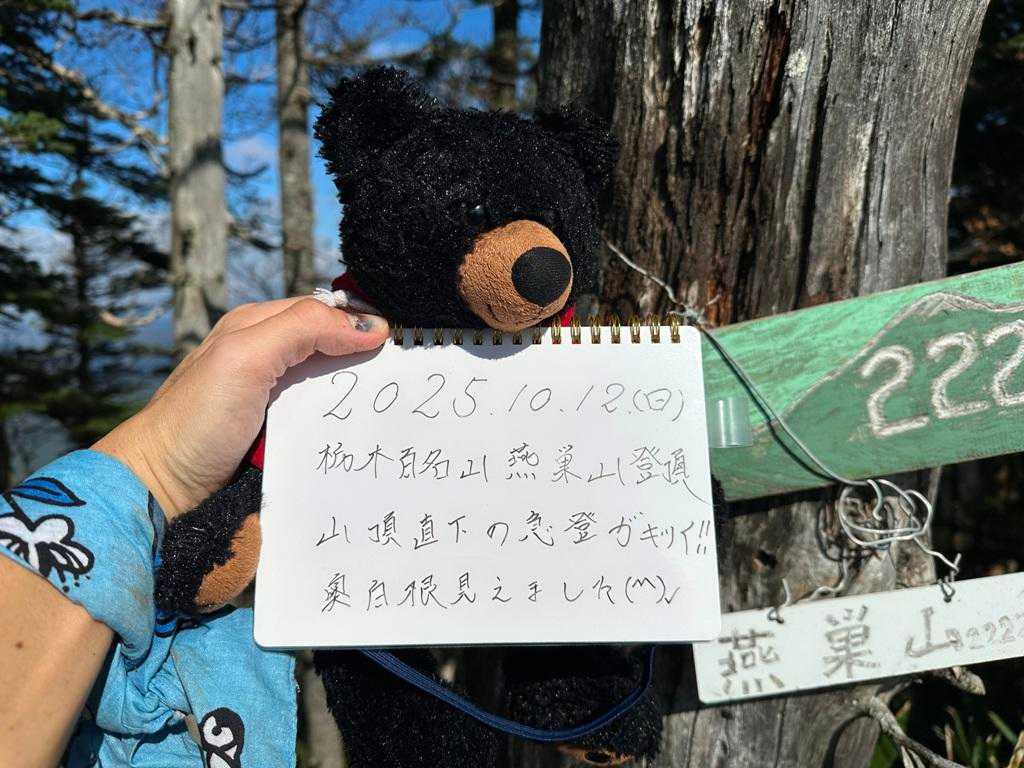 2025.10.12.(日)
栃木百名山 燕巣山登頂
山頂直下の急登がキツイ!!
奥白根見えました(^^)✓
222
燕巣山2222